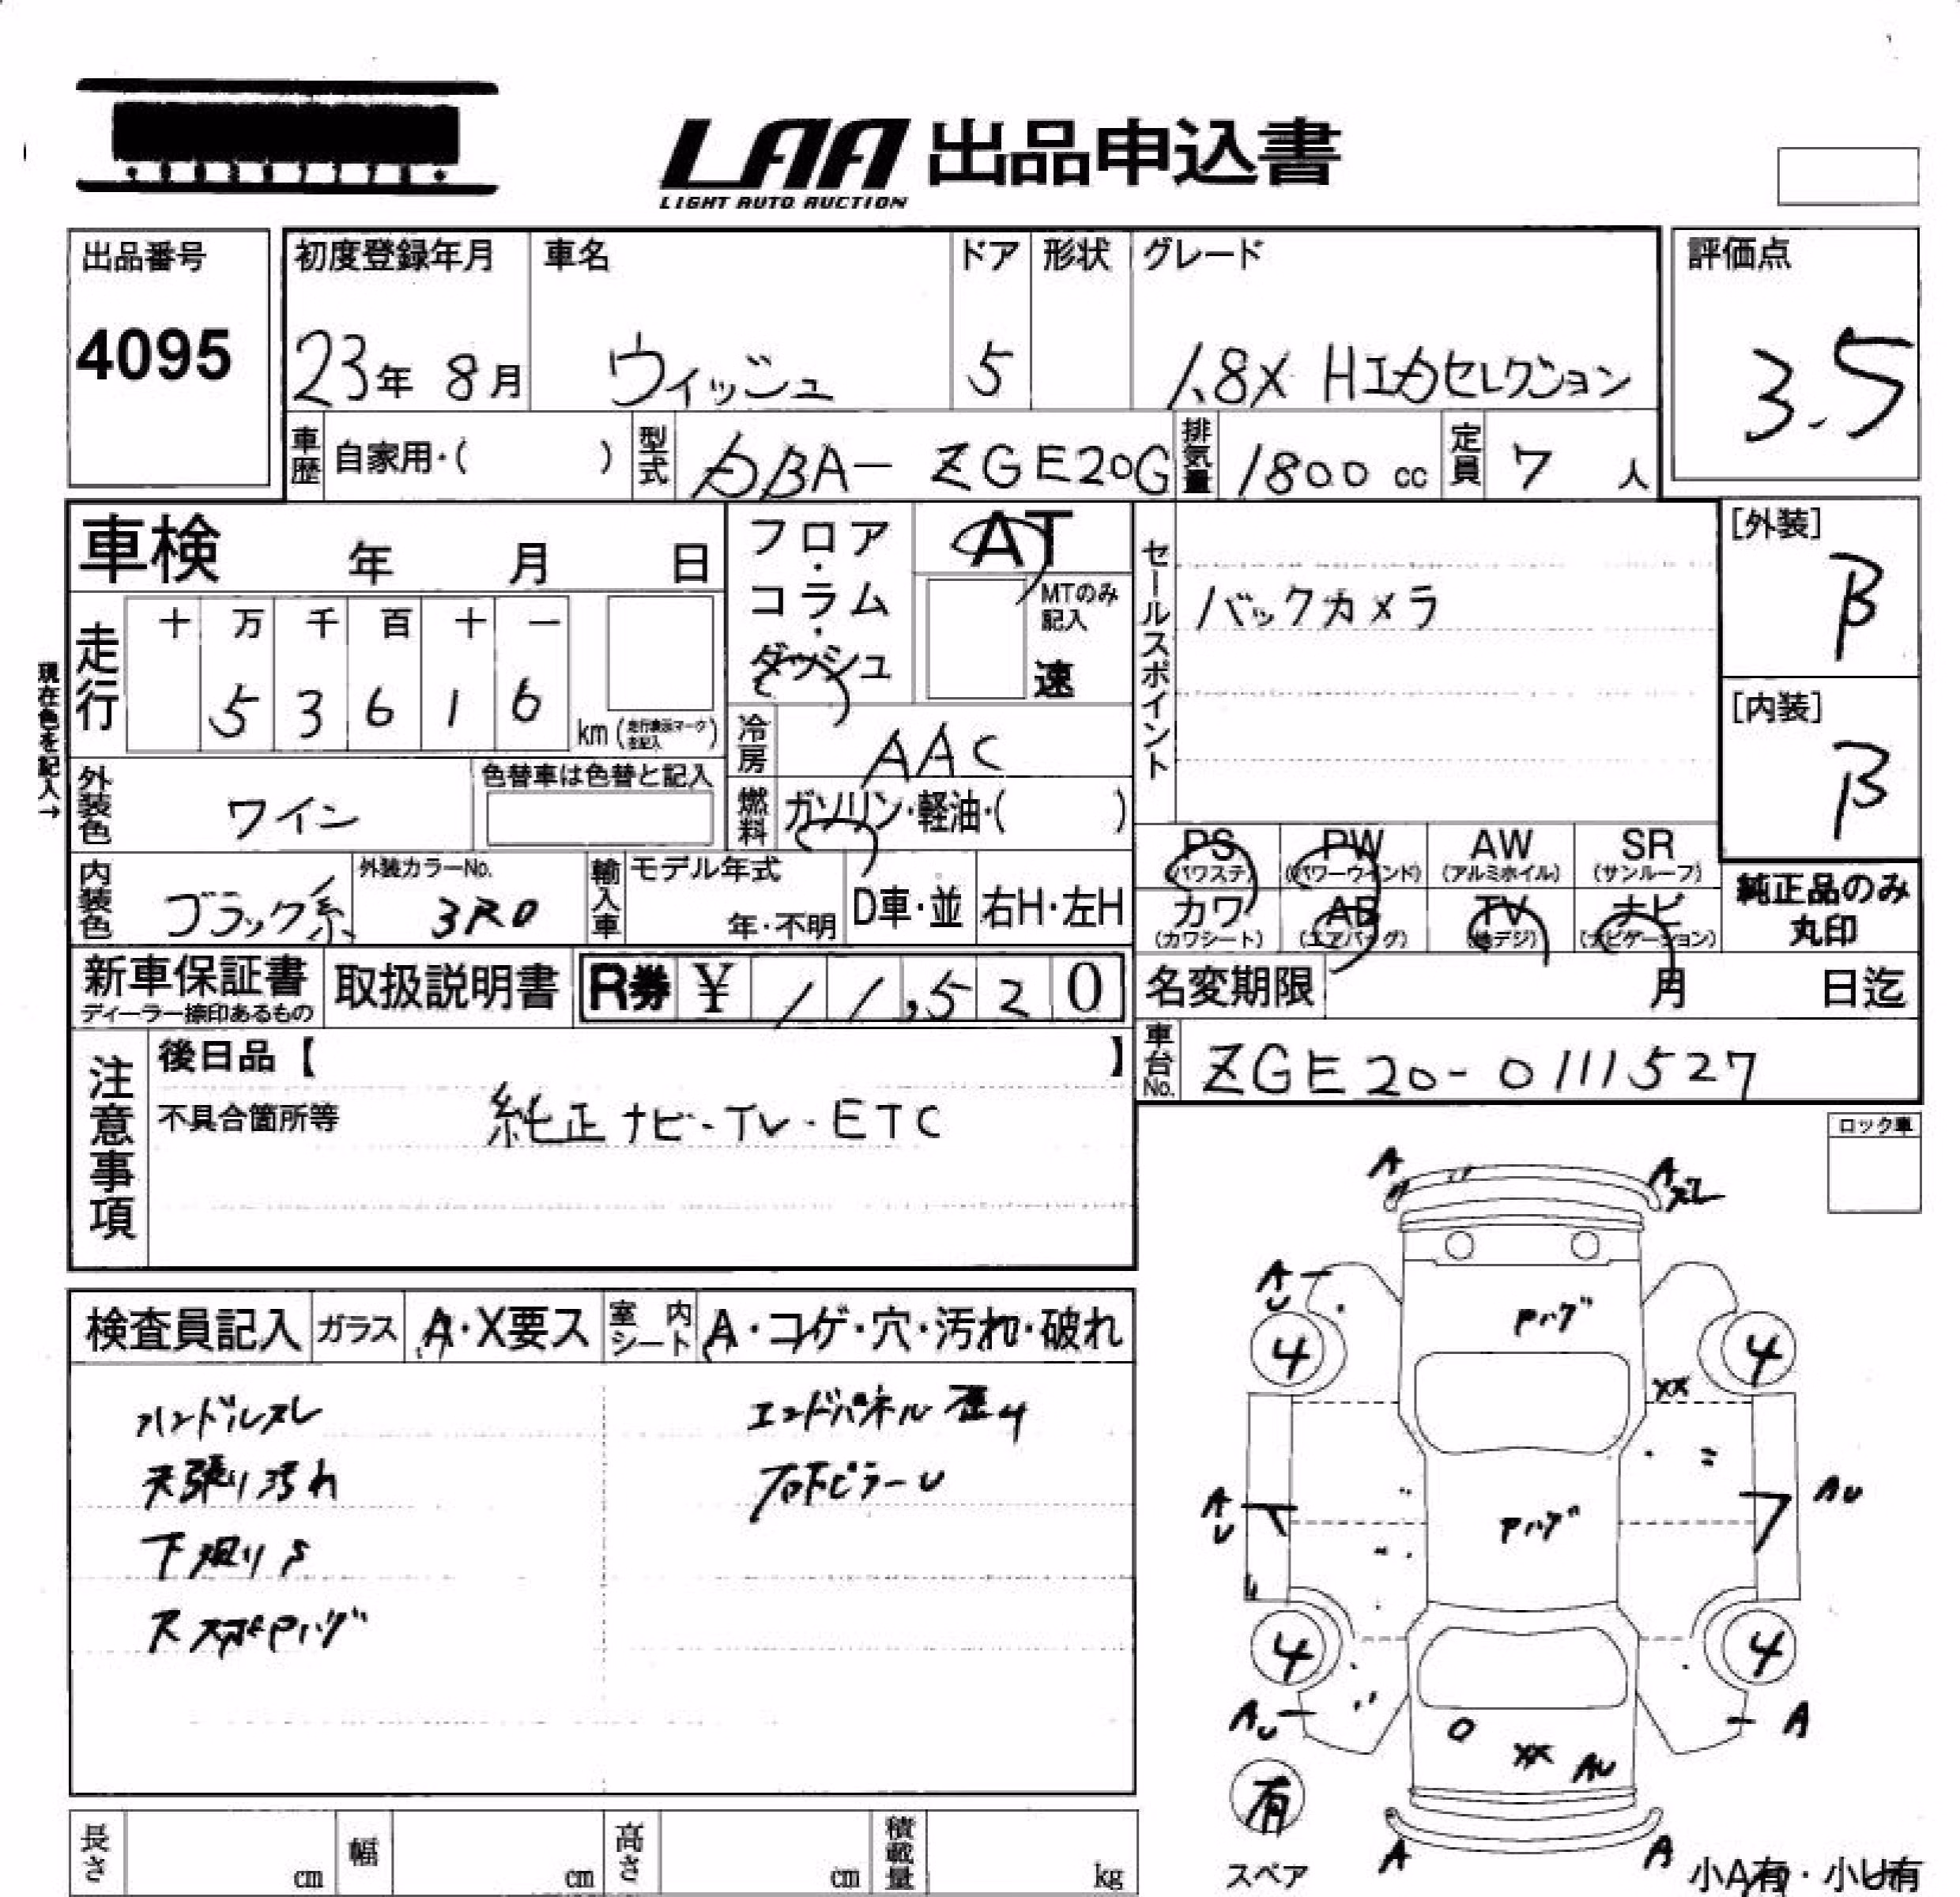 LAA 出品申込書
LIGHT AUTO AUCTION
出品番号
4095
初度登録年月
23年 8月
車名
ウィッシュ
ドア
5
形状
グレード
1.8X HIDセレクション
評価点
3.5
車歴
自家用・( )
型式
DBA- ZGE20G
排気量
1800 cc
定員
7 人
車検 年 月 日
現在色を記入→
走行
十 万 千 百 十 一
5 3 6 1 6
km (走行表示マークを記入)
フロア・コラム・ダッシュ
AT
MTのみ記入
速
冷房
AAC
燃料
ガソリン・軽油・( )
セールスポイント
バックカメラ
[外装]
B
[内装]
B
外装色
ワイン
色替車は色替と記入
内装色
ブラック系
外装カラーNo.
3R0
輸入車
モデル年式
年・不明
D車・並
右H・左H
PS (パワステ)
PW (パワーウインド)
AW (アルミホイル)
SR (サンルーフ)
カワ (カワシート)
AB (エアバッグ)
TV (地デジ)
ナビ (ナビゲーション)
純正品のみ丸印
新車保証書
ディーラー捺印あるもの
取扱説明書
R券 ¥ 11,520
名変期限 月 日迄
車台No.
ZGE20-0111527
注意事項
後日品【 】
不具合箇所等
純正ナビ・TV・ETC
ロック車
検査員記入
ガラス
A・X要ス
室内シート
A・コゲ・穴・汚れ・破れ
ハンドルスレ
エンドパネル歪み
天張り汚れ
右下ピラーU
下廻りS
A
A
スレ
AU
Pハゲ
4
4
XX
AU
AU
Pハゲ
4
4
AU
A
XX
AU
有
スペア
A
A
小A有・小U有
長さ cm
幅 cm
高さ cm
積載量 kg